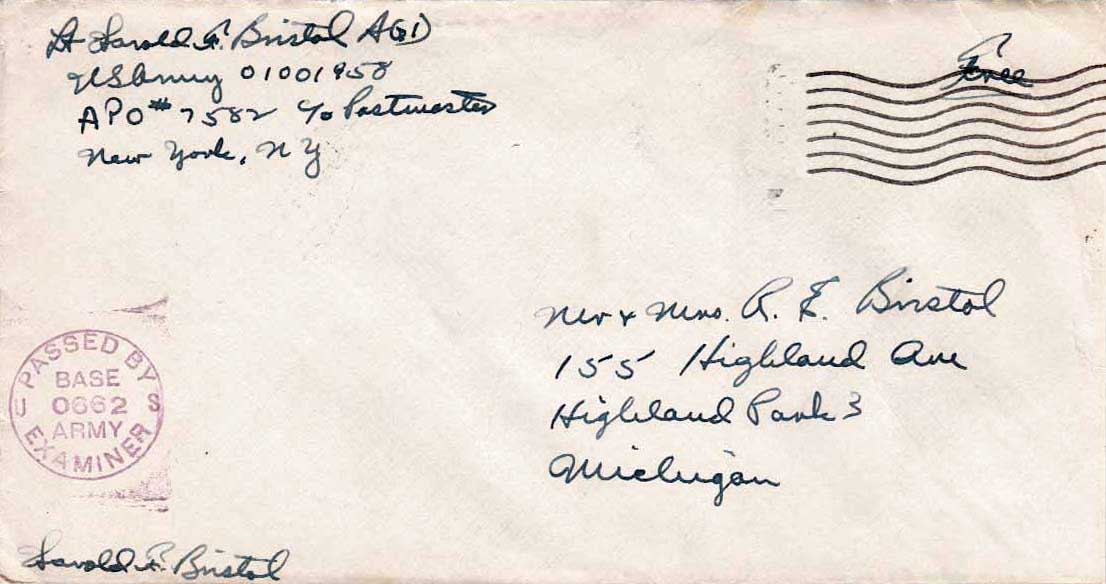 Lt Harold F. Bristol AGD
US Army 01001958
APO # 7582 c/o Postmaster
New York, N Y
Free
Mr & Mrs. R. E. Bristol
155 Highland Ave
Highland Park 3
Michigan
PASSED BY
BASE
U 0662 S
ARMY
EXAMINER
Harold F. Bristol